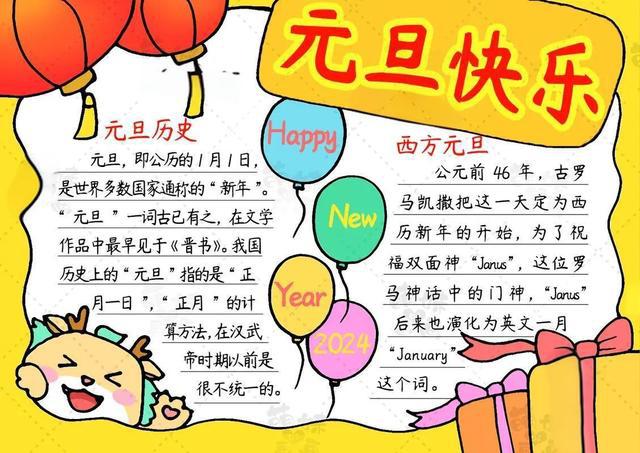 元旦快乐
元旦历史
元旦，即公历的1月1日，
是世界多数国家通称的“新年”。
“元旦”一词古已有之，在文学
作品中最早见于《晋书》。我国
历史上的“元旦”指的是“正
月一日”，“正月”的计
算方法，在汉武
帝时期以前是
很不统一的。
Happy
New
Year
2024
西方元旦
公元前 46 年，古罗
马凯撒把这一天定为西
历新年的开始，为了祝
福双面神“Janus”，这位罗
马神话中的门神，“Janus”
后来也演化为英文一月
“January”
这个词。